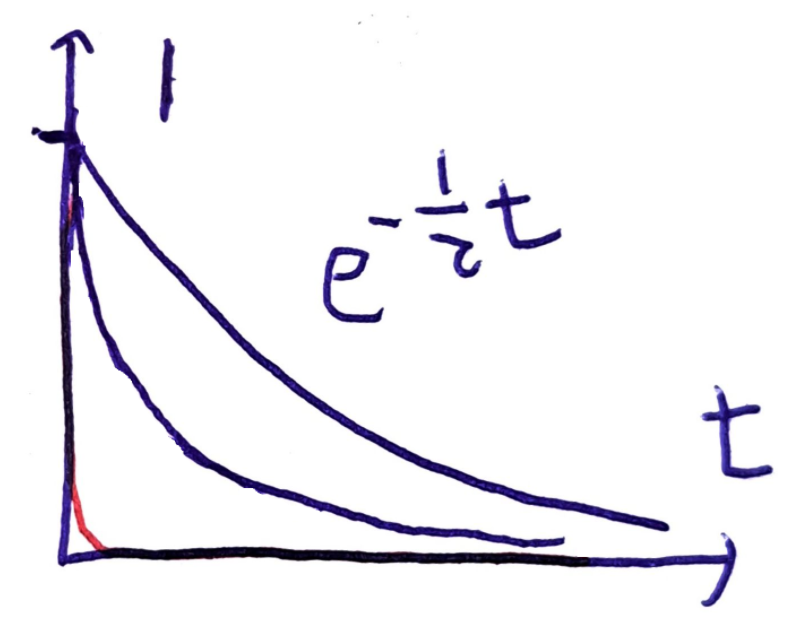 1
e^{-\frac{1}{2}t}
t